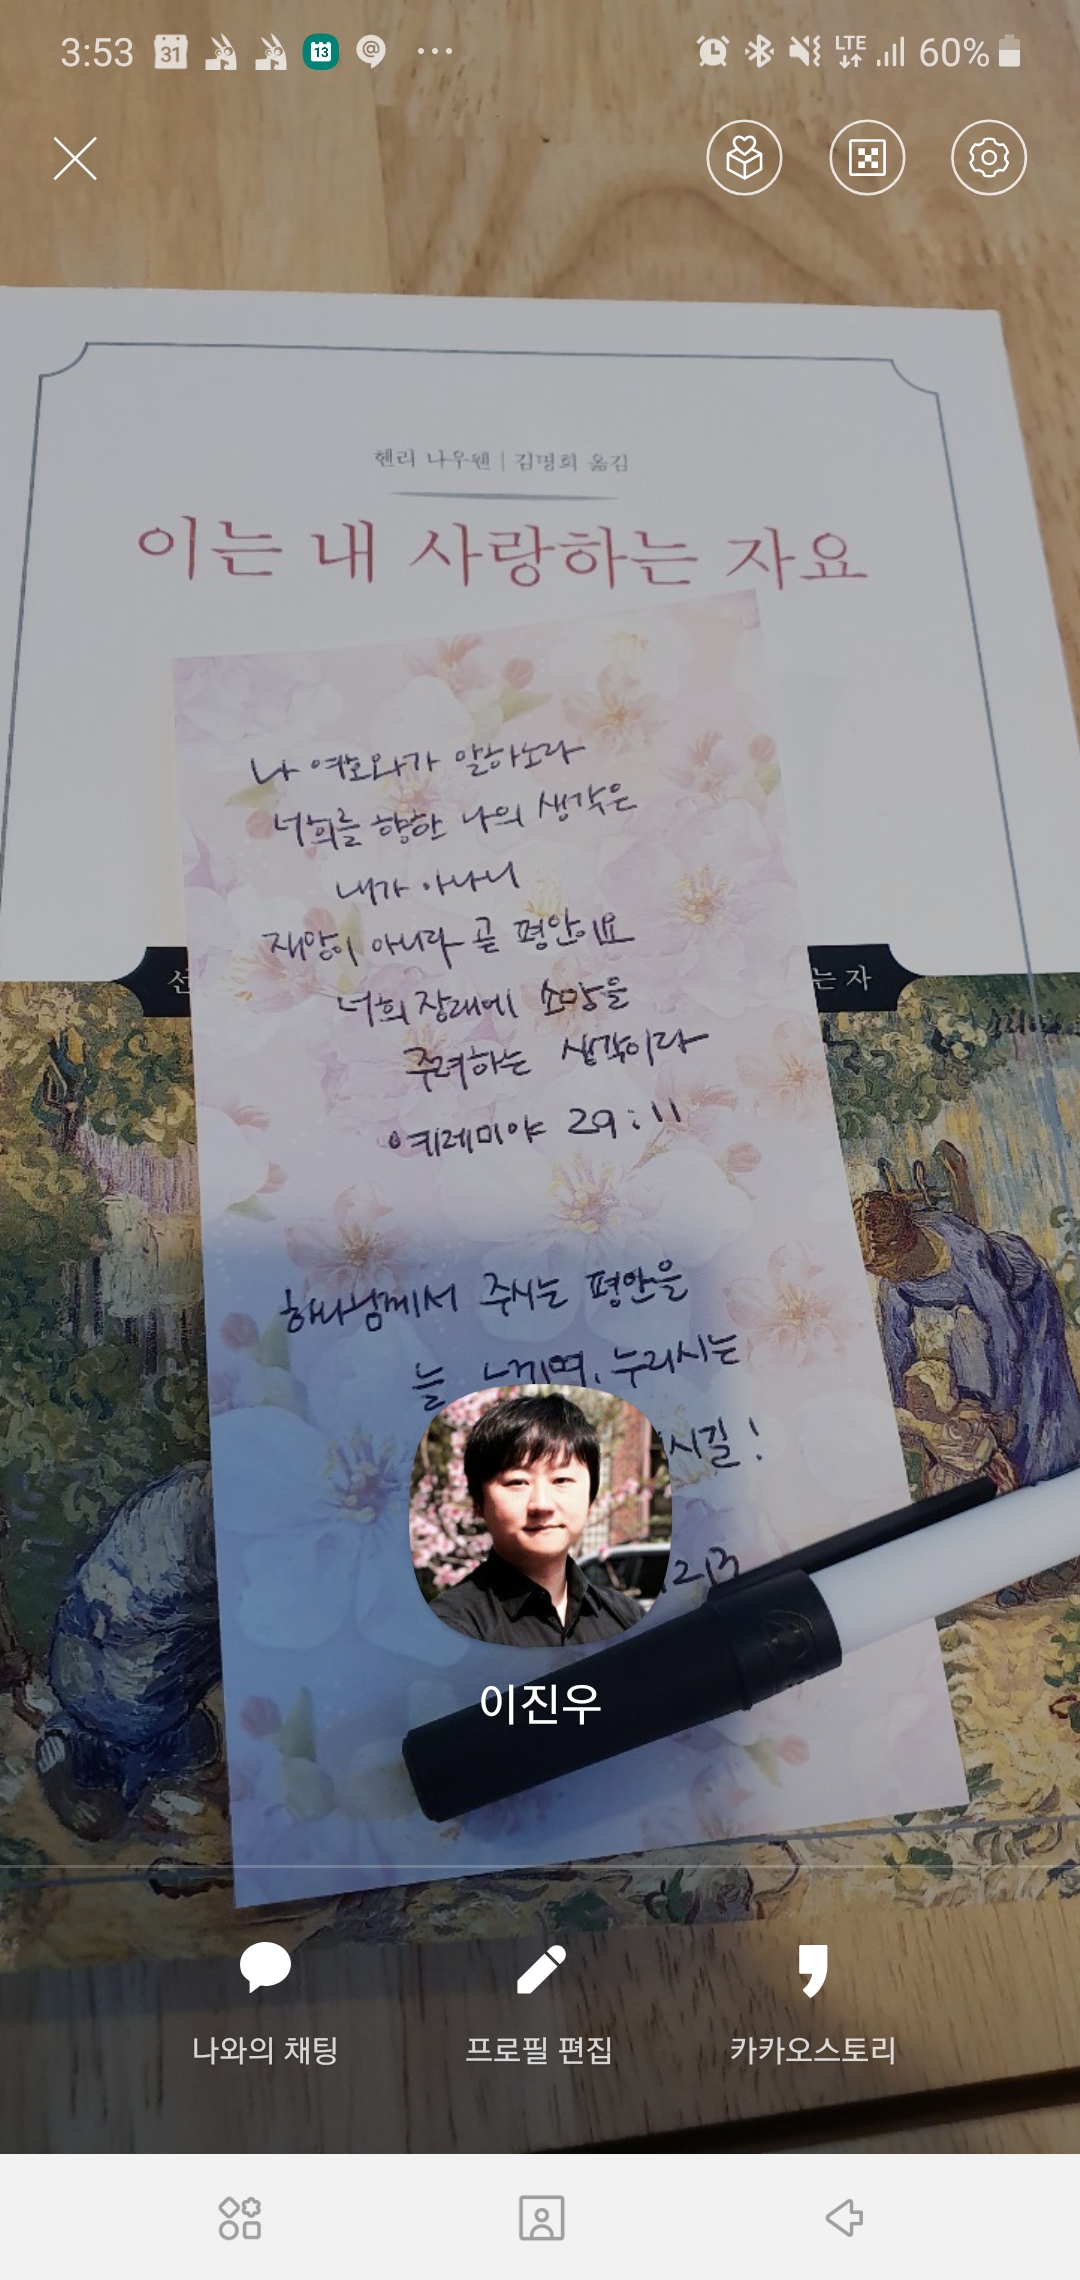 3:53
31
13
@
LTE
60%
헨리 나우웬 | 김명희 옮김
이는 내 사랑하는 자요
나 여호와가 말하노라
너희를 향한 나의 생각은
내가 아나니
재앙이 아니라 곧 평안이요
선
는 자
너희 장래에 소망을
주려하는 생각이라
예레미야 29:11
하나님께서 주시는 평안을
늘 느끼며, 누리시는
시길!
이진우
나와의 채팅
프로필 편집
카카오스토리